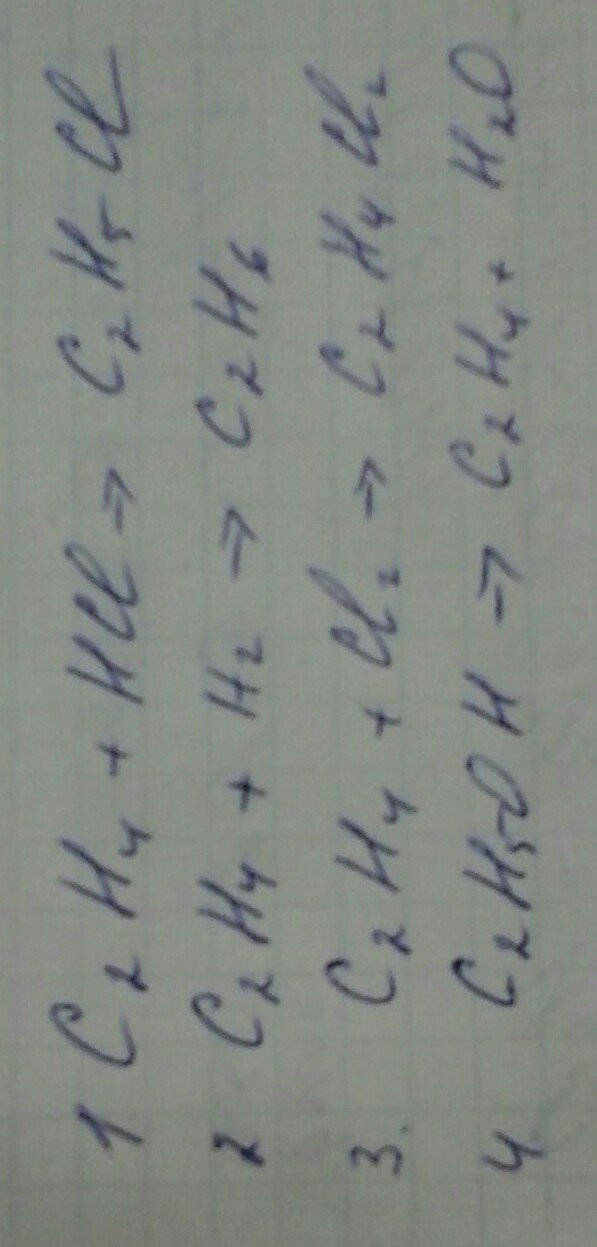 1 C₂H₄ + HCl → C₂H₅Cl
2 C₂H₄ + H₂ → C₂H₆
3. C₂H₄ + Cl₂ → C₂H₄Cl₂
4 C₂H₅OH → C₂H₄ + H₂O